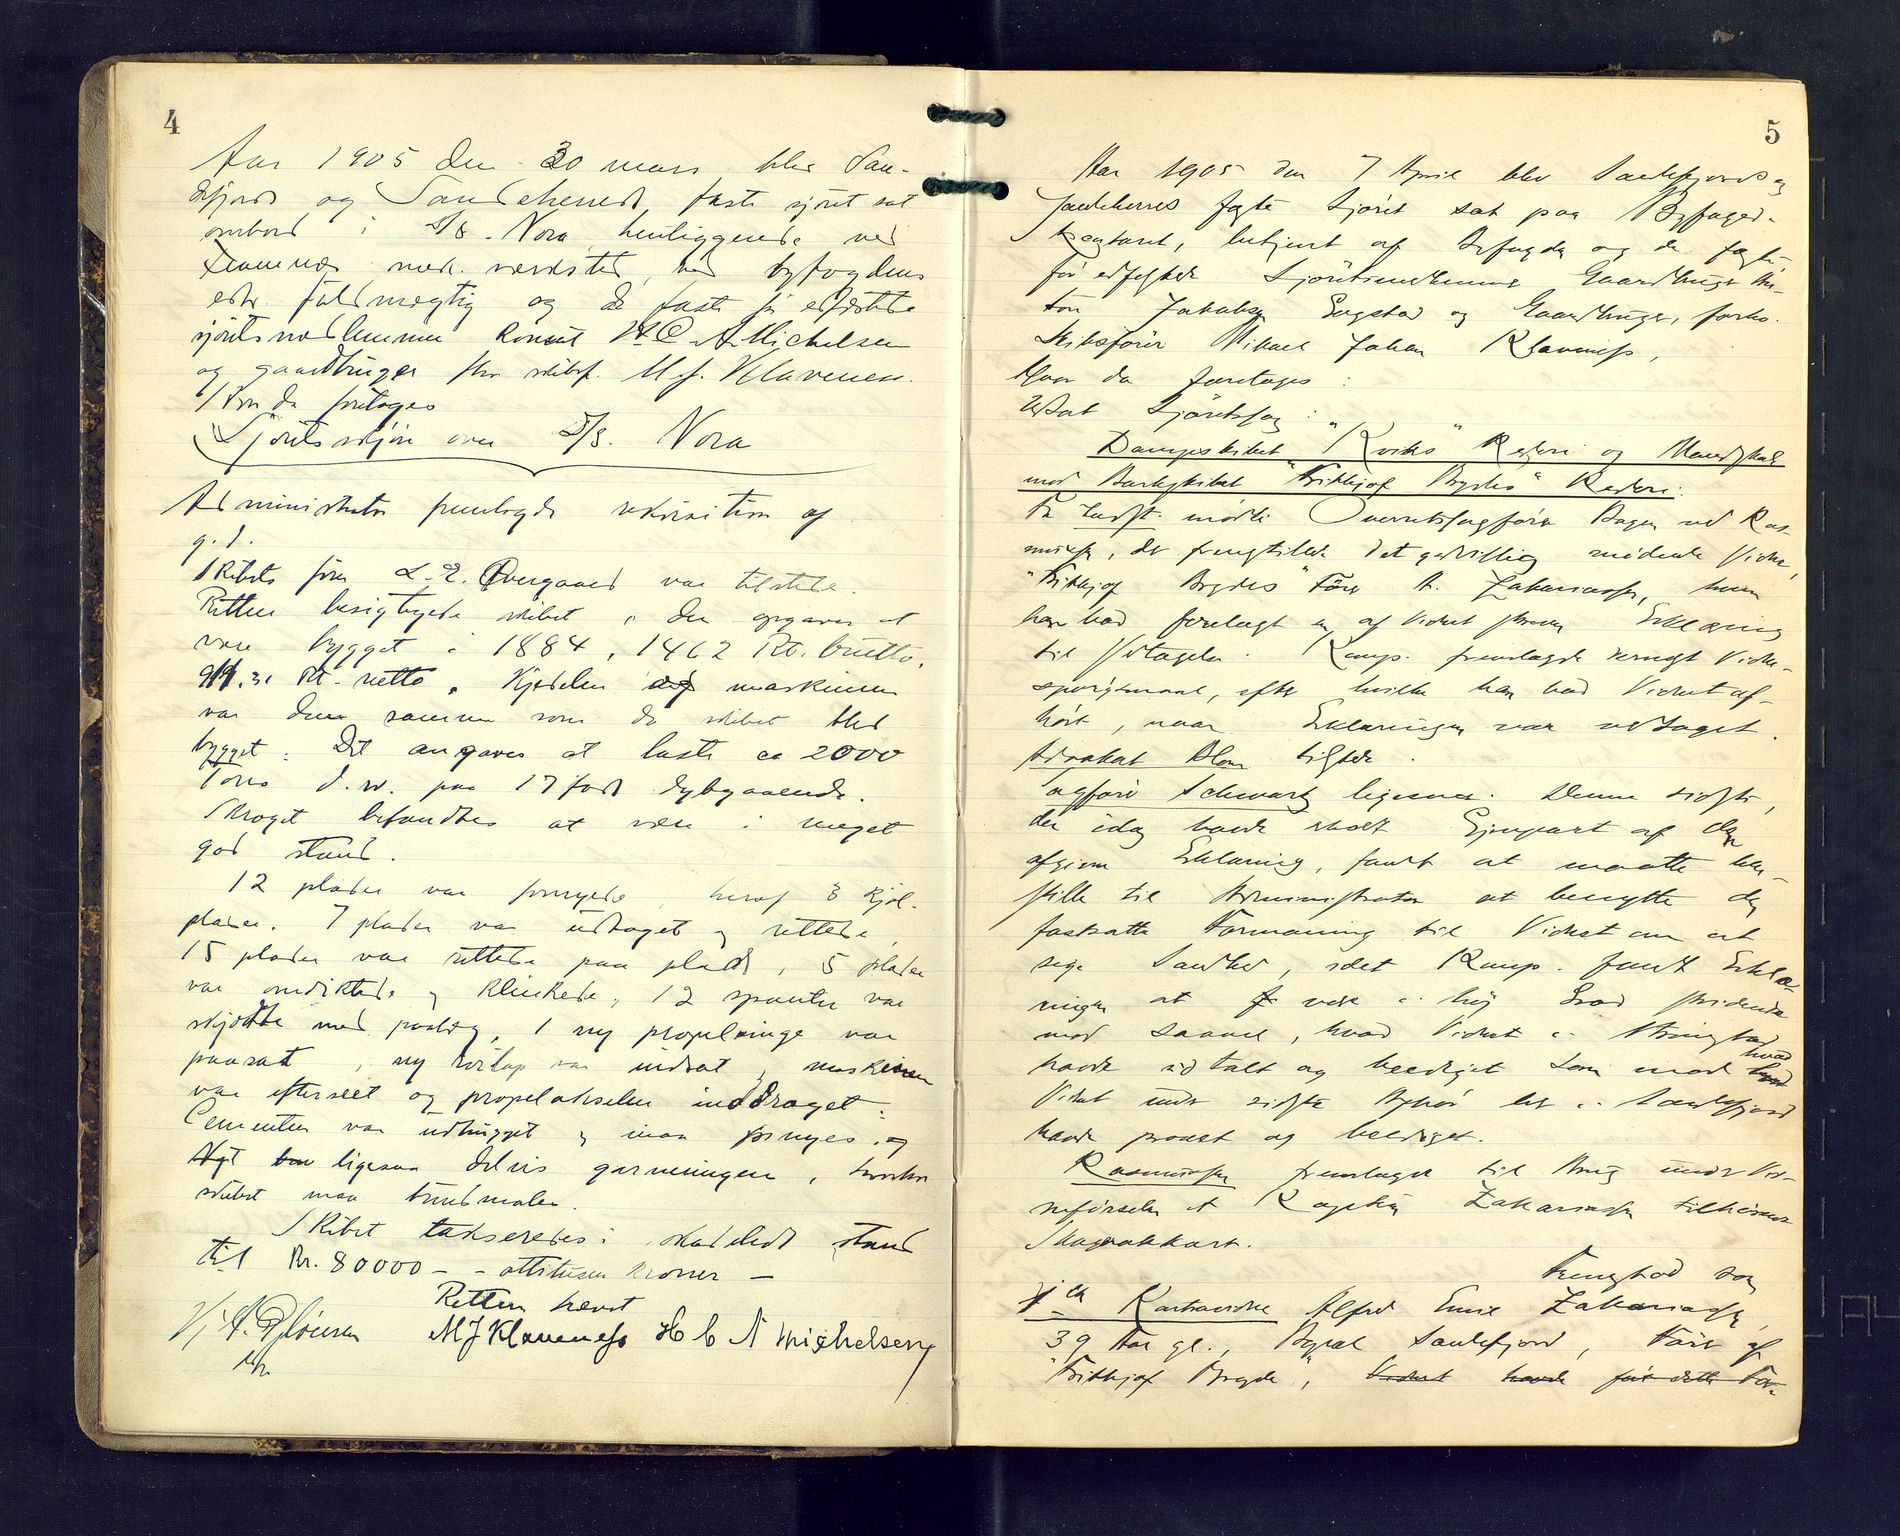 4
Aar 1905 den 30 mars blev San-
defjords og Sandeherreds faste sjøret sat
ombord i D/S. Nora henliggende ved
Framnæs mek. værksted, ved byfogdens
edsv. fuldmægtig og de faste før edfæstede
sjøretsmedlemmer konsul H C A Michelsen
og gaardbruger fhv skibsf. M. J. Klavenes.
Hvor da foretoges
Sjøretsskjøn over D/S. Nora
Administrator fremlagde rekvisition af
g. d.
Skibets fører L. E. Overgaard var tilstede.
Retten besigtigede skibet, der opgaves at
være bygget i 1884, 1462 Rt. brutto,
911.31 Rt. netto. Kjedelen og maskinen
var den samme som da skibet blev
bygget. Det angaves at laste ca 2000
Tons d. w. paa 17 fods dybgaaende.
Skroget befandtes at være i meget
god stand.
12 plader var fornyede, heraf 3 kjøl-
plader. 7 plader var udtaget og rettede,
15 plader var rettede paa plads, 5 plader
var omdiktede og klinkede, 12 spanter var
skjøtte med paalæg, 1 ny propelvinge var
paasat, ny var indsat, maskinen
var efterseet og propelakselen inddraget.
Cementen var udhugget og maa fornyes og
ligesaa delvis garneringen, hvorhos
skibet maa bundmales.
Skibet takseredes i skadelidt stand
til Kr. 80000 - - ottitusen kroner -
Retten hævet
MJKlaveness H C A Michelsen
5
Aar 1905 den 7 April blev Sandefjords og
Sandeherreds faste Sjøret sat paa Byfoged-
kontoret, betjent af Byfogden og de faste
før edfæstede Sjøretsmedlemmer Gaardbruger An-
ton Jakobsen Bugstad og Gaardbruger, forh.
Skibsfører Mikael Johan Klavness,
Hvor da foretoges:
Udsat Sjøretssag:
Dampskibet "Kviks" Rederi og Mandskab
mod Barkskibet "Frithjof Brydes" Rederi.
For mødte Overretssagfører Bogen ved Ras-
mussen, der fremstillede det godvillig mødende Vidne,
"Fritjof Brydes" Fører A. Zakariassen, hvem
han bad forelagt en af Vidnet skreven Erklæring
til Vedtagelse. Komp. fremlagde derneǵst Vidne-
spørgsmaal, efter hvilke han bad Vidnet af-
hørt, naar Erklæringen var vedtaget.
Advokat Blom tilstede.
Sagfører Schwartz ligesaa. Denne sidste,
der idag havde modt Gjenpart af den
afgivne Erklæring, fandt at maatte hen-
stille til Administrator at benytte den
fastsatte Formaning til Vidnet om at
sige Sandhed, idet Komp. fandt Erklæ-
ringen at være i høi Grad stridende
mod saavel, hvad Vidnet i Strømstad
havde udtalt og beediget som mod hvad
Vidnet under sidste Afhør her i Sandefjord
havde provet og beediget.
Rasmussen fremlagde til Brug under Vid-
neførselen et Kaptein Zakariassen tilhørende
Skagerakkart.
Fremstod som
Kontravidne Alfred Emil Zakariassen,
39 Aar gl., Bopæl Sandefjord, Fører af
"Fritjof Bryde", Vidnet havde før dette For-